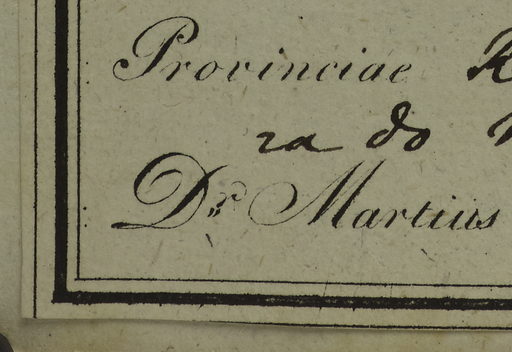 Provinciae R
ra do
Dr. Martius